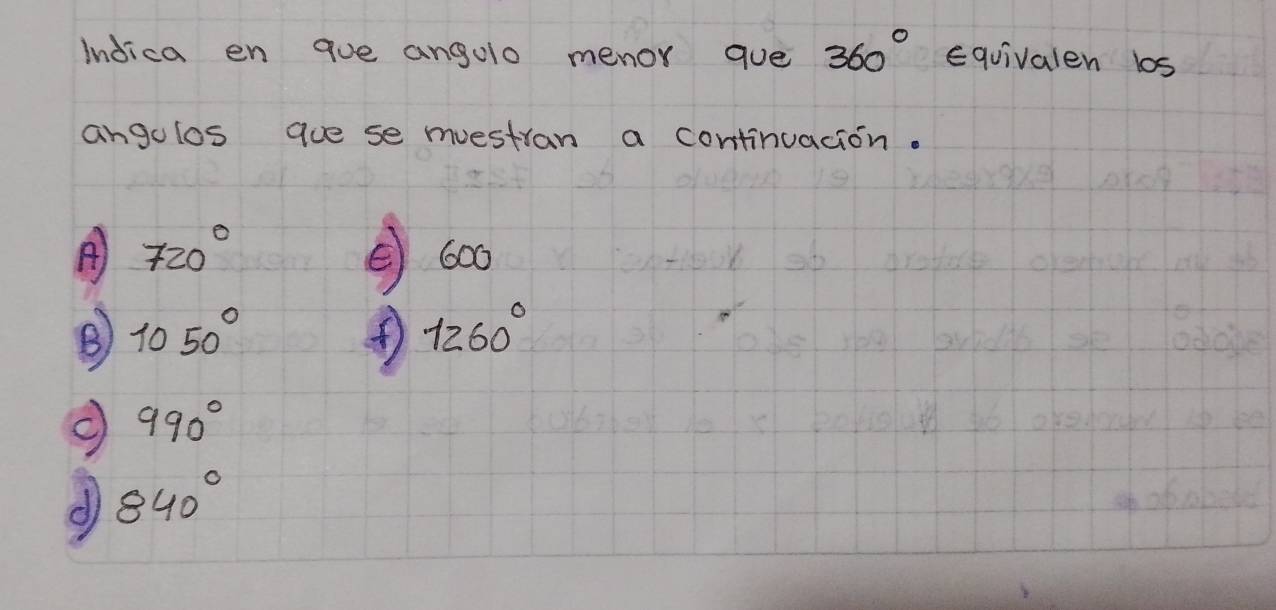 Indica en que angulo menor que 360° Equivalen los
angulos que se muestran a continuación.
A) 720°
B) 1050°
c) 990°
d) 840°
E) 600
f) 1260°